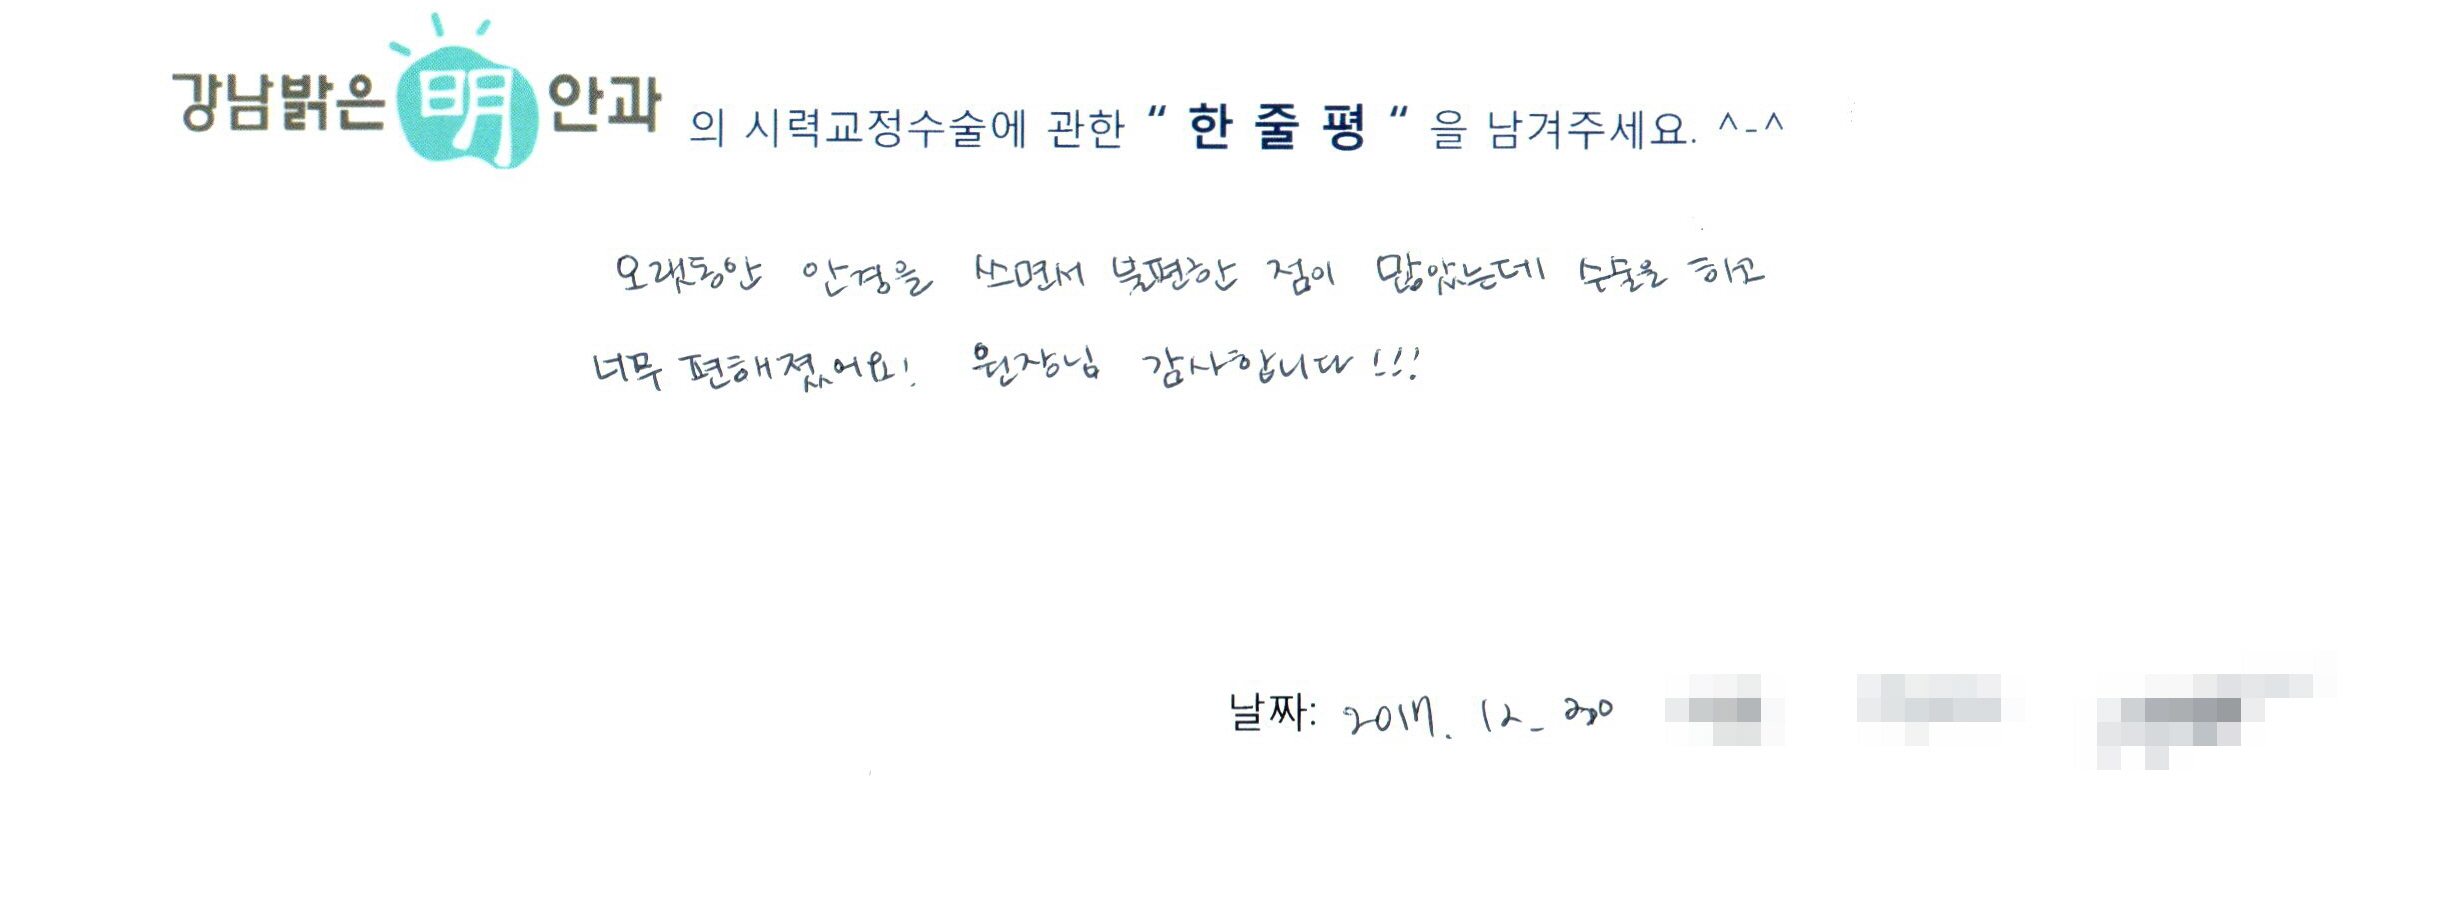 강남밝은 明 안과 의 시력교정수술에 관한 “ 한 줄 평 “ 을 남겨주세요. ^-^
오랫동안 안경을 쓰면서 불편한 점이 많았는데 수술을 하고
너무 편해졌어요! 원장님 감사합니다!!!
날짜: 2017. 12.